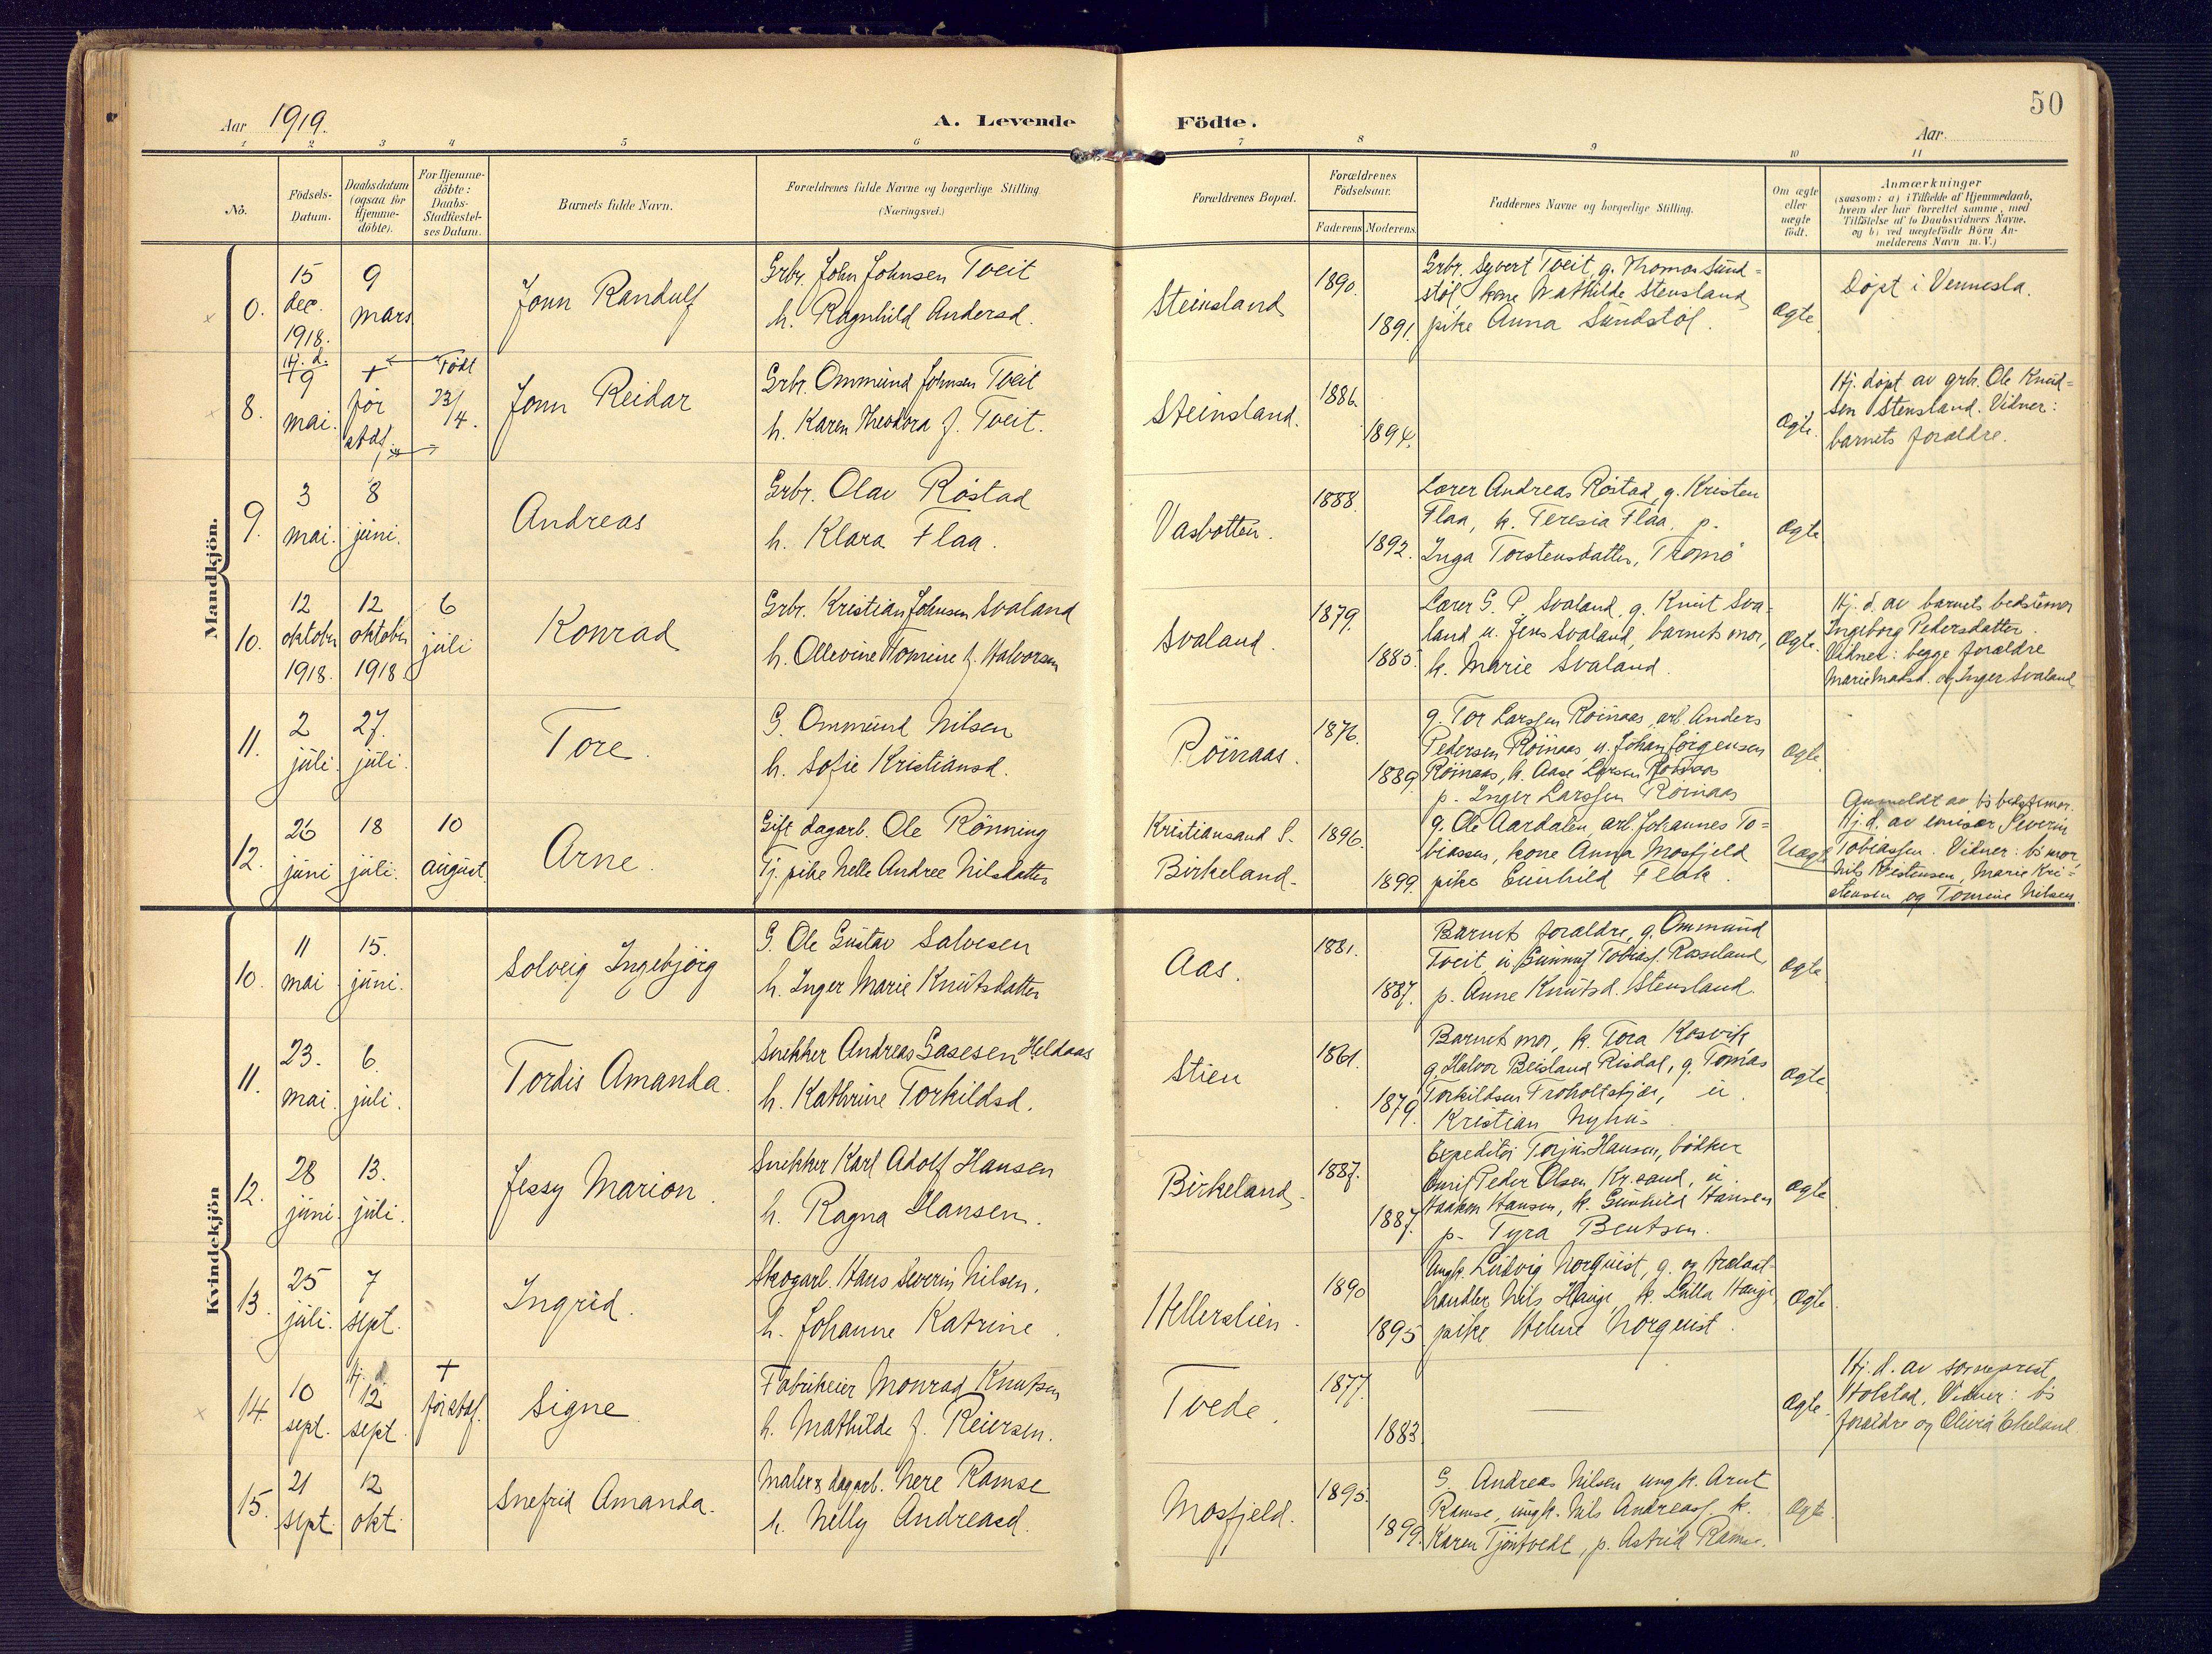 50
Aar 1919.
A. Levende Födte.
Aar
1 2 3 4 5 6 7 8 9 10 11
No.
Födsels-
Datum.
Daabsdatum
(ogsaa for
Hjemme-
döbte).
For Hjemme-
döbte:
Daabs-
Stadfæstel-
ses Datum.
Barnets fulde Navn.
Forældrenes fulde Navne og borgerlige Stilling
(Næringsvei.)
Forældrenes Bopæl.
Forældrenes
Födselsaar.
Faderens Moderens
Faddernes Navne og borgerlige Stilling.
Om ægte
eller
uægte
födt.
Anmærkninger
(saasom: a) i Tilfælde af Hjemmedaab,
hvem der har forrettet samme, med
Tilföielse af to Daabsvidners Navne,
og b) ved uægtefödte Börn An-
melderens Navn m. V.)
Mandkjön.
0.
15
dec.
1918.
9
mars
Jonn Randulf
Grbr. John Johnsen Tveit
h. Ragnhild Andersd.
Steinsland
1890.
1891.
Grbr. Syvert Tveit, g. Thomas Sund-
støl, kone Mathilde Stensland
pike Anna Sundstøl.
Ægte
Døpt i Vennesla.
8.
Hj. d.
19
mai.
+
før
stdf.
Født
23/
/4.
Jonn Reidar
Grbr. Ommund Johnsen Tveit
h. Karen Theodora f. Tveit.
Steinsland.
1886.
1894.
Ægte.
Hj. døpt av grbr. Ole Knud-
sen Stensland. Vidner:
barnets forældre.
9.
3
mai.
8
juni.
Andreas
Grbr. Olav Røstad
h. Klara Flaa.
Vasbotten.
1888.
1892.
Lærer Andreas Røstad, g. Kristen
Flaa, k. Teresia Flaa, p.
Inga Torstensdatter, Tromö
Ægte
10.
12
oktober
1918.
12
oktober
1918
6
juli
Konrad
Grbr. Kristian Johnsen Svaland
h. Ollevine Tomine f. Halvorsen
Svaland.
1879.
1885.
Lærer G. P. Svaland, g. Knut Sva-
land u. Jens Svaland, barnets mor,
k. Marie Svaland.
Ægte.
Hj. d. av barnets bedstemor
Ingeborg Pedersdatter.
Vidner: begge forældre
Marie Madsd. og Inger Svaland
11.
2
juli.
27.
juli.
Tore.
G. Ommund Nilsen
h. Sofie Kristiansd.
Röinaas.
1876.
1889
g. Tor Larssen Röinaas, arb. Anders
Pedersen Röinaas u. Johan Jörgensen
Röinaas, k. Aase Larsen Röinaas
p. Inger Larssen Röinaas
Ægte
12.
26
juni
18
juli.
10
august.
Arne.
Gift dagarb. Ole Rönning
Tj. pike Nelle Andree Nilsdatter
Kristiansand S.
Birkeland.
1896.
1899.
g. Ole Aardalen, arb. Johannes To-
biassen, kone Anna Mosfjeld
pike Gunhild Flak.
Uægte
Anmeldt av b's bedstemor.
Hj. d. av emisær Severin
Tobiassen. Vidner: b's mor,
Nils Kristensen, Marie Kri-
stensen og Tomine Nilsen.
Kvindekjön
10.
11
mai
15.
juni.
Solveig Ingebjörg
G. Ole Gustav Salvesen
h. Inger Marie Knutsdatter
Aas.
1881.
1887.
Barnets forældre, g. Ommund
Tveit, u. Gunnuf Tobiasf. Rosseland
p. Anne Knutsd. Stensland.
Ægte
11.
23.
mai.
6.
juli.
Tordis Amanda
Snekker Andreas Gasesen Heldaas
h. Kathrine Torkildsd.
Stien
1861.
1879.
Barnets mor, k. Tora Kosvik
g. Halvor Beisland Risdal, g. Tomas
Torkildsen Troholtskjær, u.
Kristian Nyhus
Ægte
12.
28
juni.
13.
juli.
Jessy Marion.
Snekker Karl Adolf Hansen
h. Ragna Hansen.
Birkeland.
1887.
1887.
Expeditör Torjus Hansen, bødker
Peder Olsen Kr.sand, u.
Haakon Hansen, k. Gunhild Hansen
p. Tyra Bentsen.
Ægte
13.
25
juli.
7
sept.
Ingrid.
Skogarb. Hans Severin Nilsen.
h. Johanne Katrine.
Hellerslien.
1890
1895
Ungk. Ludvig Norquist, g. og trælast-
handler Nils Hauge, k. Lulla Hauge,
pike Helene Norquist.
Ægte
14.
10
sept.
Hj. d.
12
sept.
+
før stdf.
Signe
Fabrikeier Monrad Knutsen
h. Mathilde f. Reiersen.
Tvede.
1877.
1883.
Ægte.
Hj. d. av sogneprest
Holstad. Vidner: b's
forældre og Olivia Ekeland.
15.
21
sept.
12
okt.
Snefrid Amanda.
Maler & dagarb. Nere Ramse
h. Nelly Andreasd.
Mosfjeld.
1895.
1899.
G. Andreas Nilsen ungk. Arnt
Ramse, ungk. Nils Andreasf. k.
Karen Tjöntvedt, p. Astrid Ramse.
Ægte